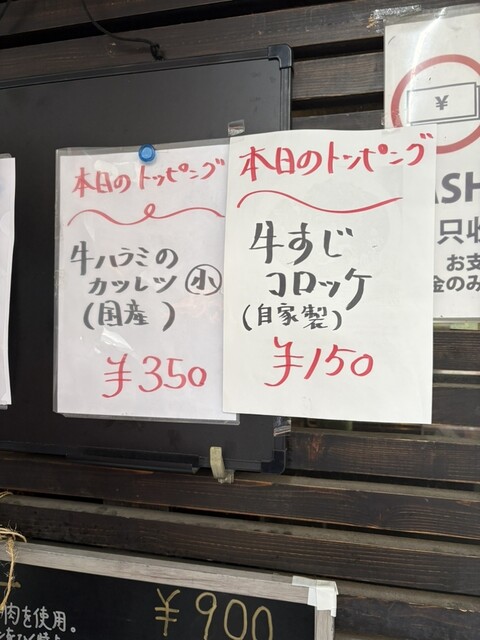 本日のトッピング
牛ハラミの
カツレツ 小
(国産)
¥350
本日のトッピング
牛すじ
コロッケ
(自家製)
¥150
¥
ASH
只收
お支
金のみ
肉を使用。
¥900